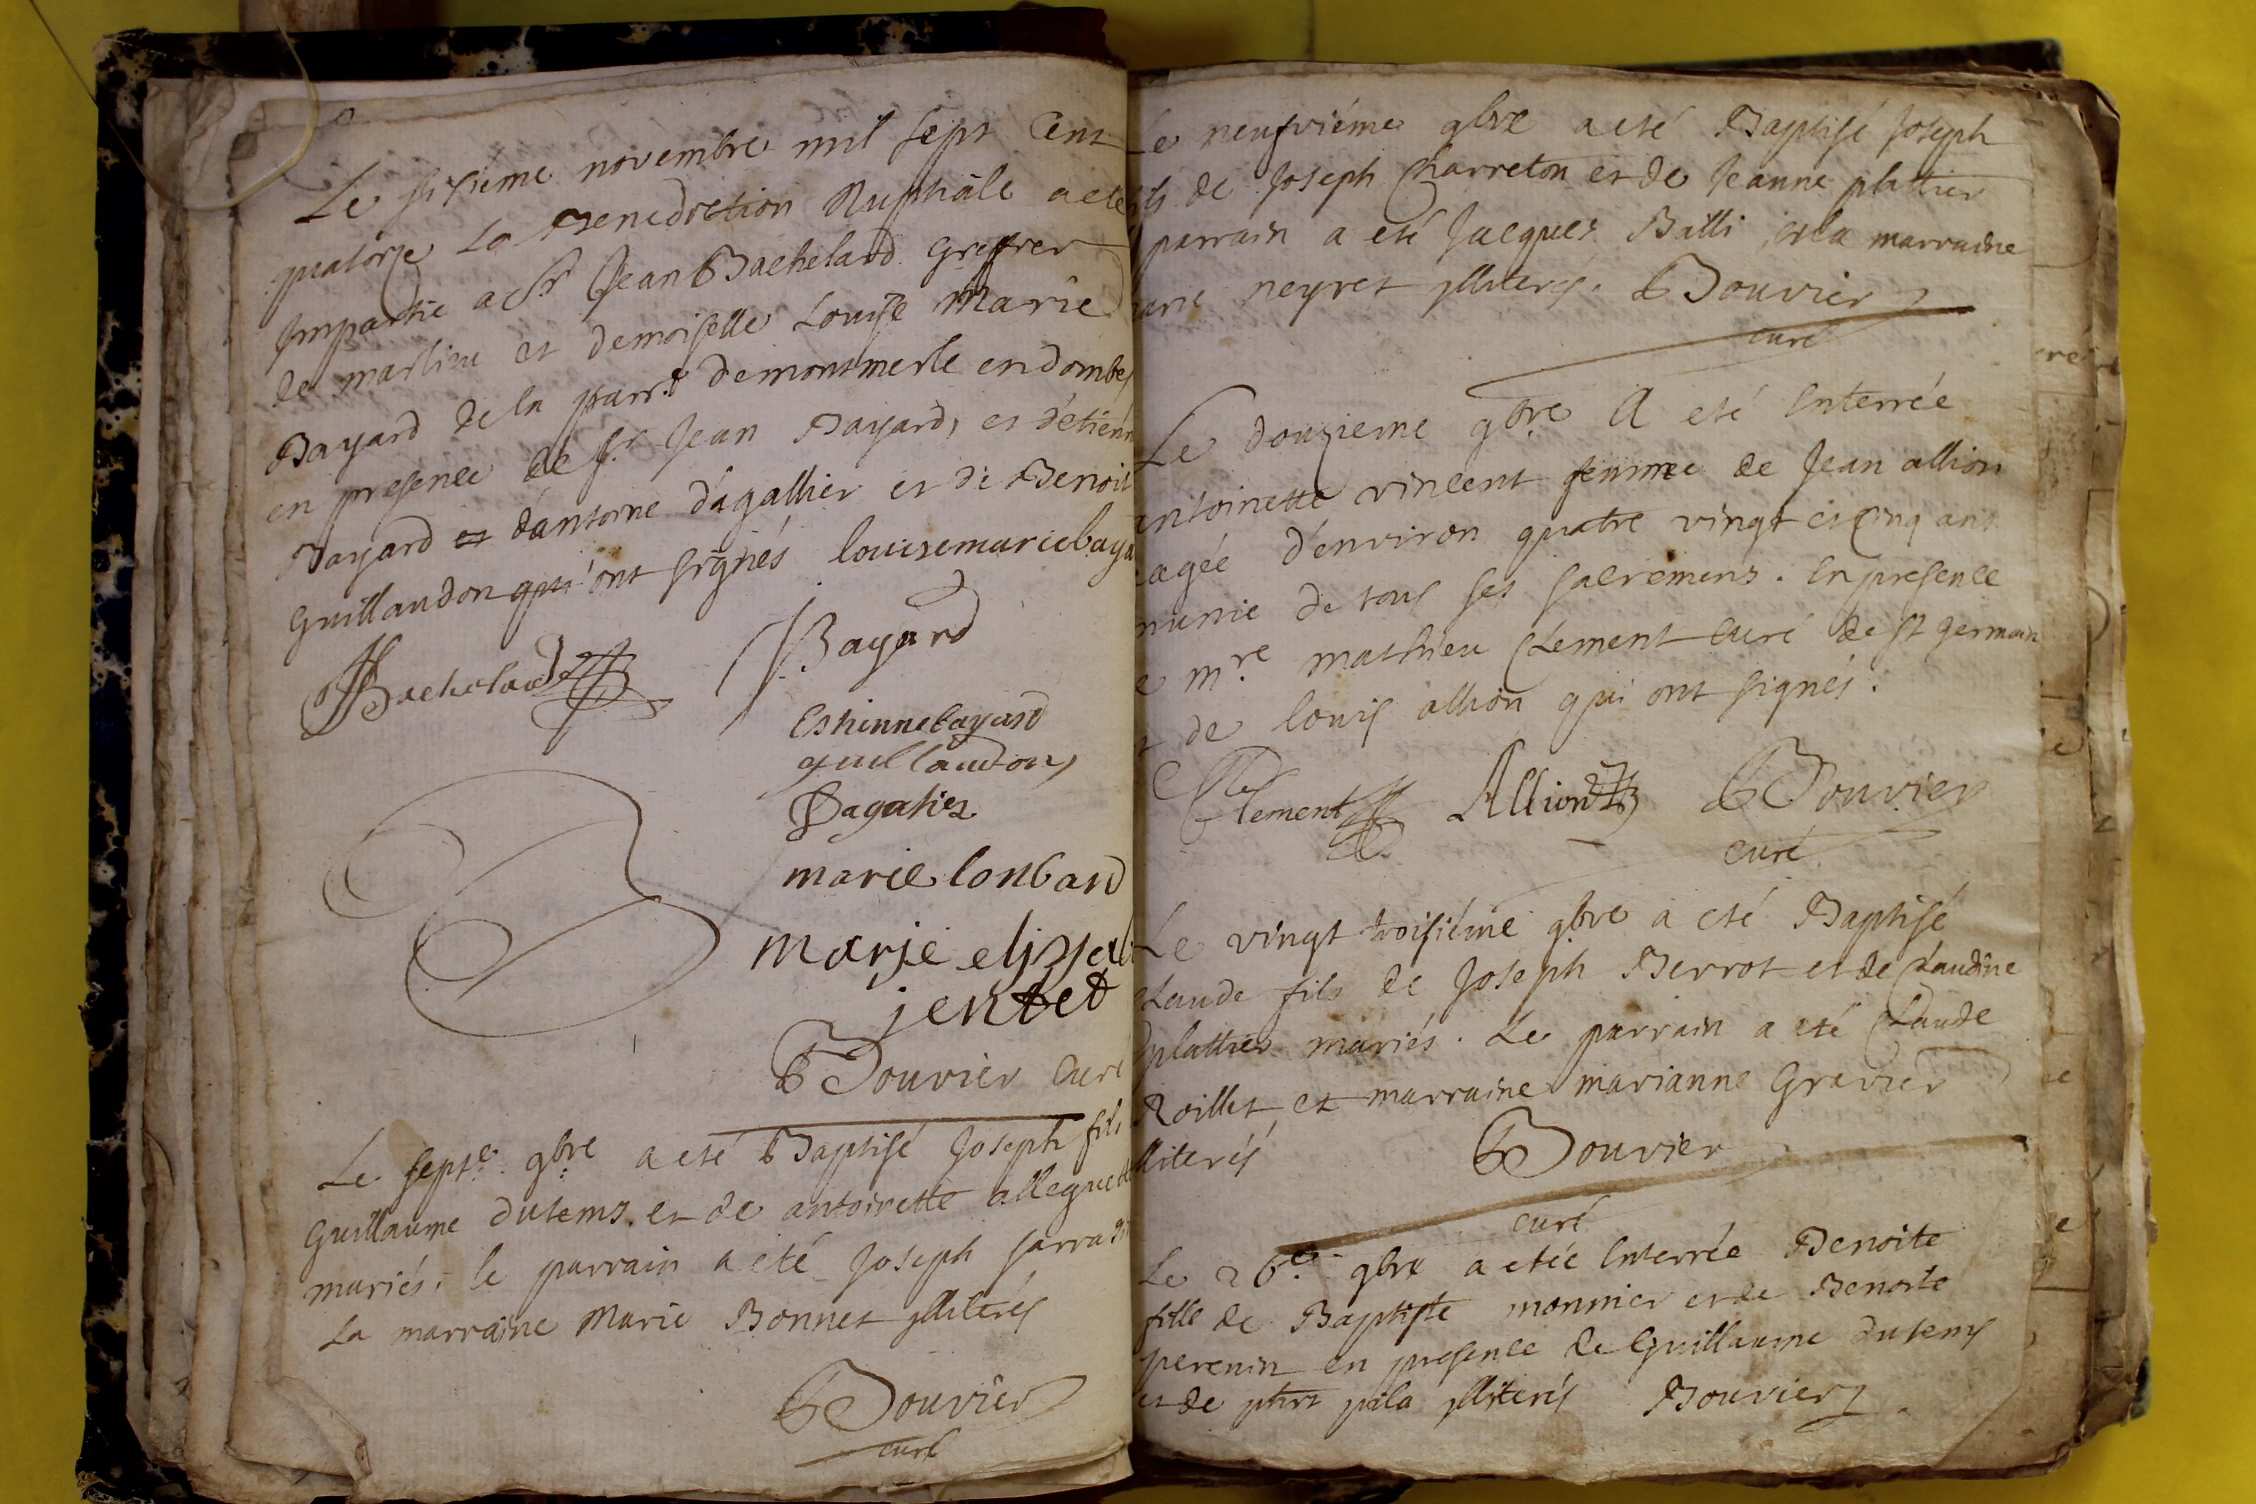 Le sisieme novembre mil sept Cent
quatorze La Benediction Nuptiale a eté
Impartie a Sr Jean Bachelard Greffier
de et demoiselle Louise Marie
Bayard de la parr.e de montmerle en dombes
en presence de Sr Jean Bayard, et d'étienn
Bayard et d'antoine d'agallier et de Benoit
Guillaudon qui ont signés louisemariebaya
JBachelard JBayard
Estiennebayard
guillaudon
Dagalier
marie lonbard
marie elizab
jentet
Bouvier Curé
Le septe. 9bre a eté Baptisé Joseph fils
Guillaume dutems et de antoinette allegue
mariés, le parrain a eté Joseph sarra
La marraine Marie Bonnet illiterés
Bouvier
curé
Le neufviéme 9bre a eté Baptisé Joseph
ls de Joseph Charreton et de Jeanne plattier
parrain a eté Jacques Billi et la marraine
neyret illiterés. Bouvier
curé
Le douzieme 9bre A eté Enterrée
antoinette vincent femme de Jean allion
agée d'environ quatre vingt et cinq ans
munie de tous ses sacremens. En presence
e m.re mathieu Clement curé de st germain
t de louis allion qui ont signés.
Clement Allion Bouvier
curé
Le vingt troisiéme 9bre a eté Baptisé
Claude fils de Joseph Berrot et de Claudine
plattier mariés. Le parrain a eté Claude
Roillet et marraine marianne Gravier
lliterés Bouvier
curé
Le 26e. 9bre a etée Enterrée Benoite
fille de Baptiste monnier et de Benoite
perenin en presence de Guillaume dutems
et de pila illiterés Bouvier